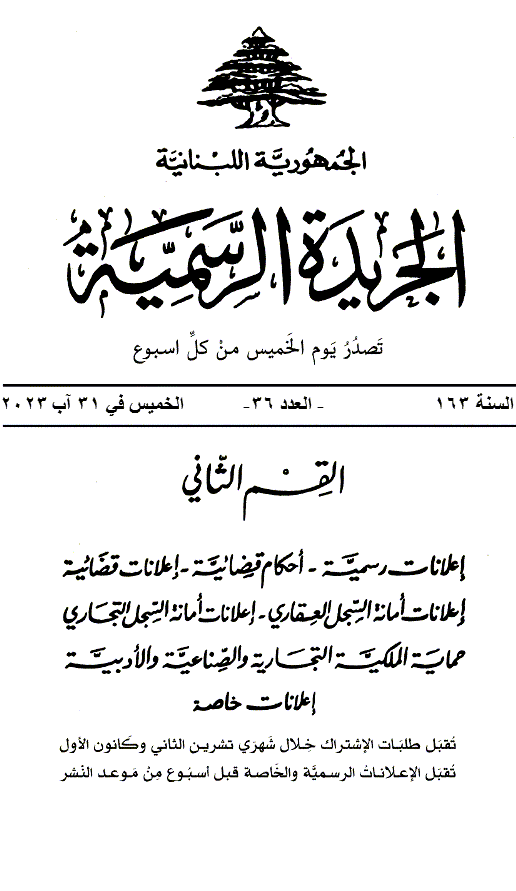 الجُمهُوريَّة اللبْنَانيَّة
الجَريدَة الرَّسمِيَّة
تَصدُرُ يَوم الخَميس منْ كلِّ اسبوع
السنة ١٦٣ - العدد ٣٦- الخميس في ٣١ آب ٢٠٢٣
القِسْم الثَّاني
إعلانات رسميَّة - أحكام قضائيَّة - إعلانات قضائية
إعلانات أمانة السِّجل العِقاري - إعلانات أمانة السِّجل التِّجاري
حماية الملكيَّة التجارية والصِّناعيَّة والأدبيَّة
إعلانات خاصة
تُقبَل طلبَات الإشتراك خِلال شَهرَي تشرين الثاني وكَانون الأول
تُقبَل الإعلاناتُ الرسميَّة والخَاصة قبل أسبُوع مِنْ مَوعد النَشر